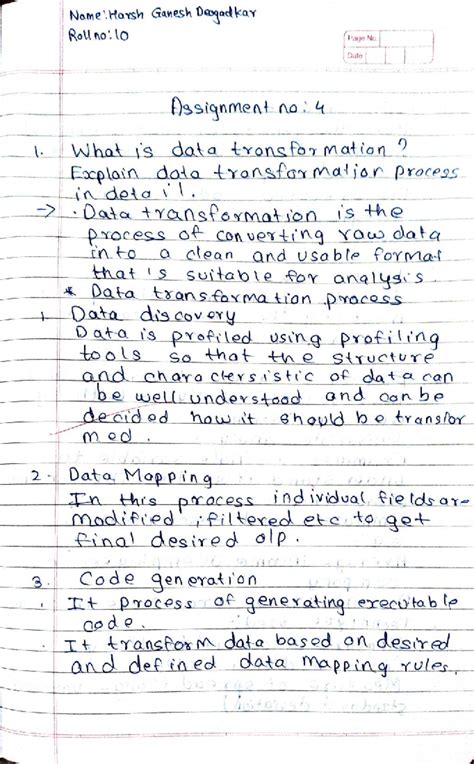 Name: Harsh Ganesh Deogadkar
Roll no: 10
Page No.
Date
Assignment no: 4
1. What is data transformation?
Explain data transformation process
in detail.
→ • Data transformation is the
process of converting raw data
into a clean and usable format
that is suitable for analysis.
* Data transformation process
1. Data discovery
Data is profiled using profiling
tools so that the structure
and charactersistic of data can
be well understood and can be
decided how it should be transfor
med.
2. Data Mapping
In this process individual fields are
modified, filtered etc to get
final desired o/p.
3. Code generation
• It process of generating executable
code.
• It transform data based on desired
and defined data mapping rules.